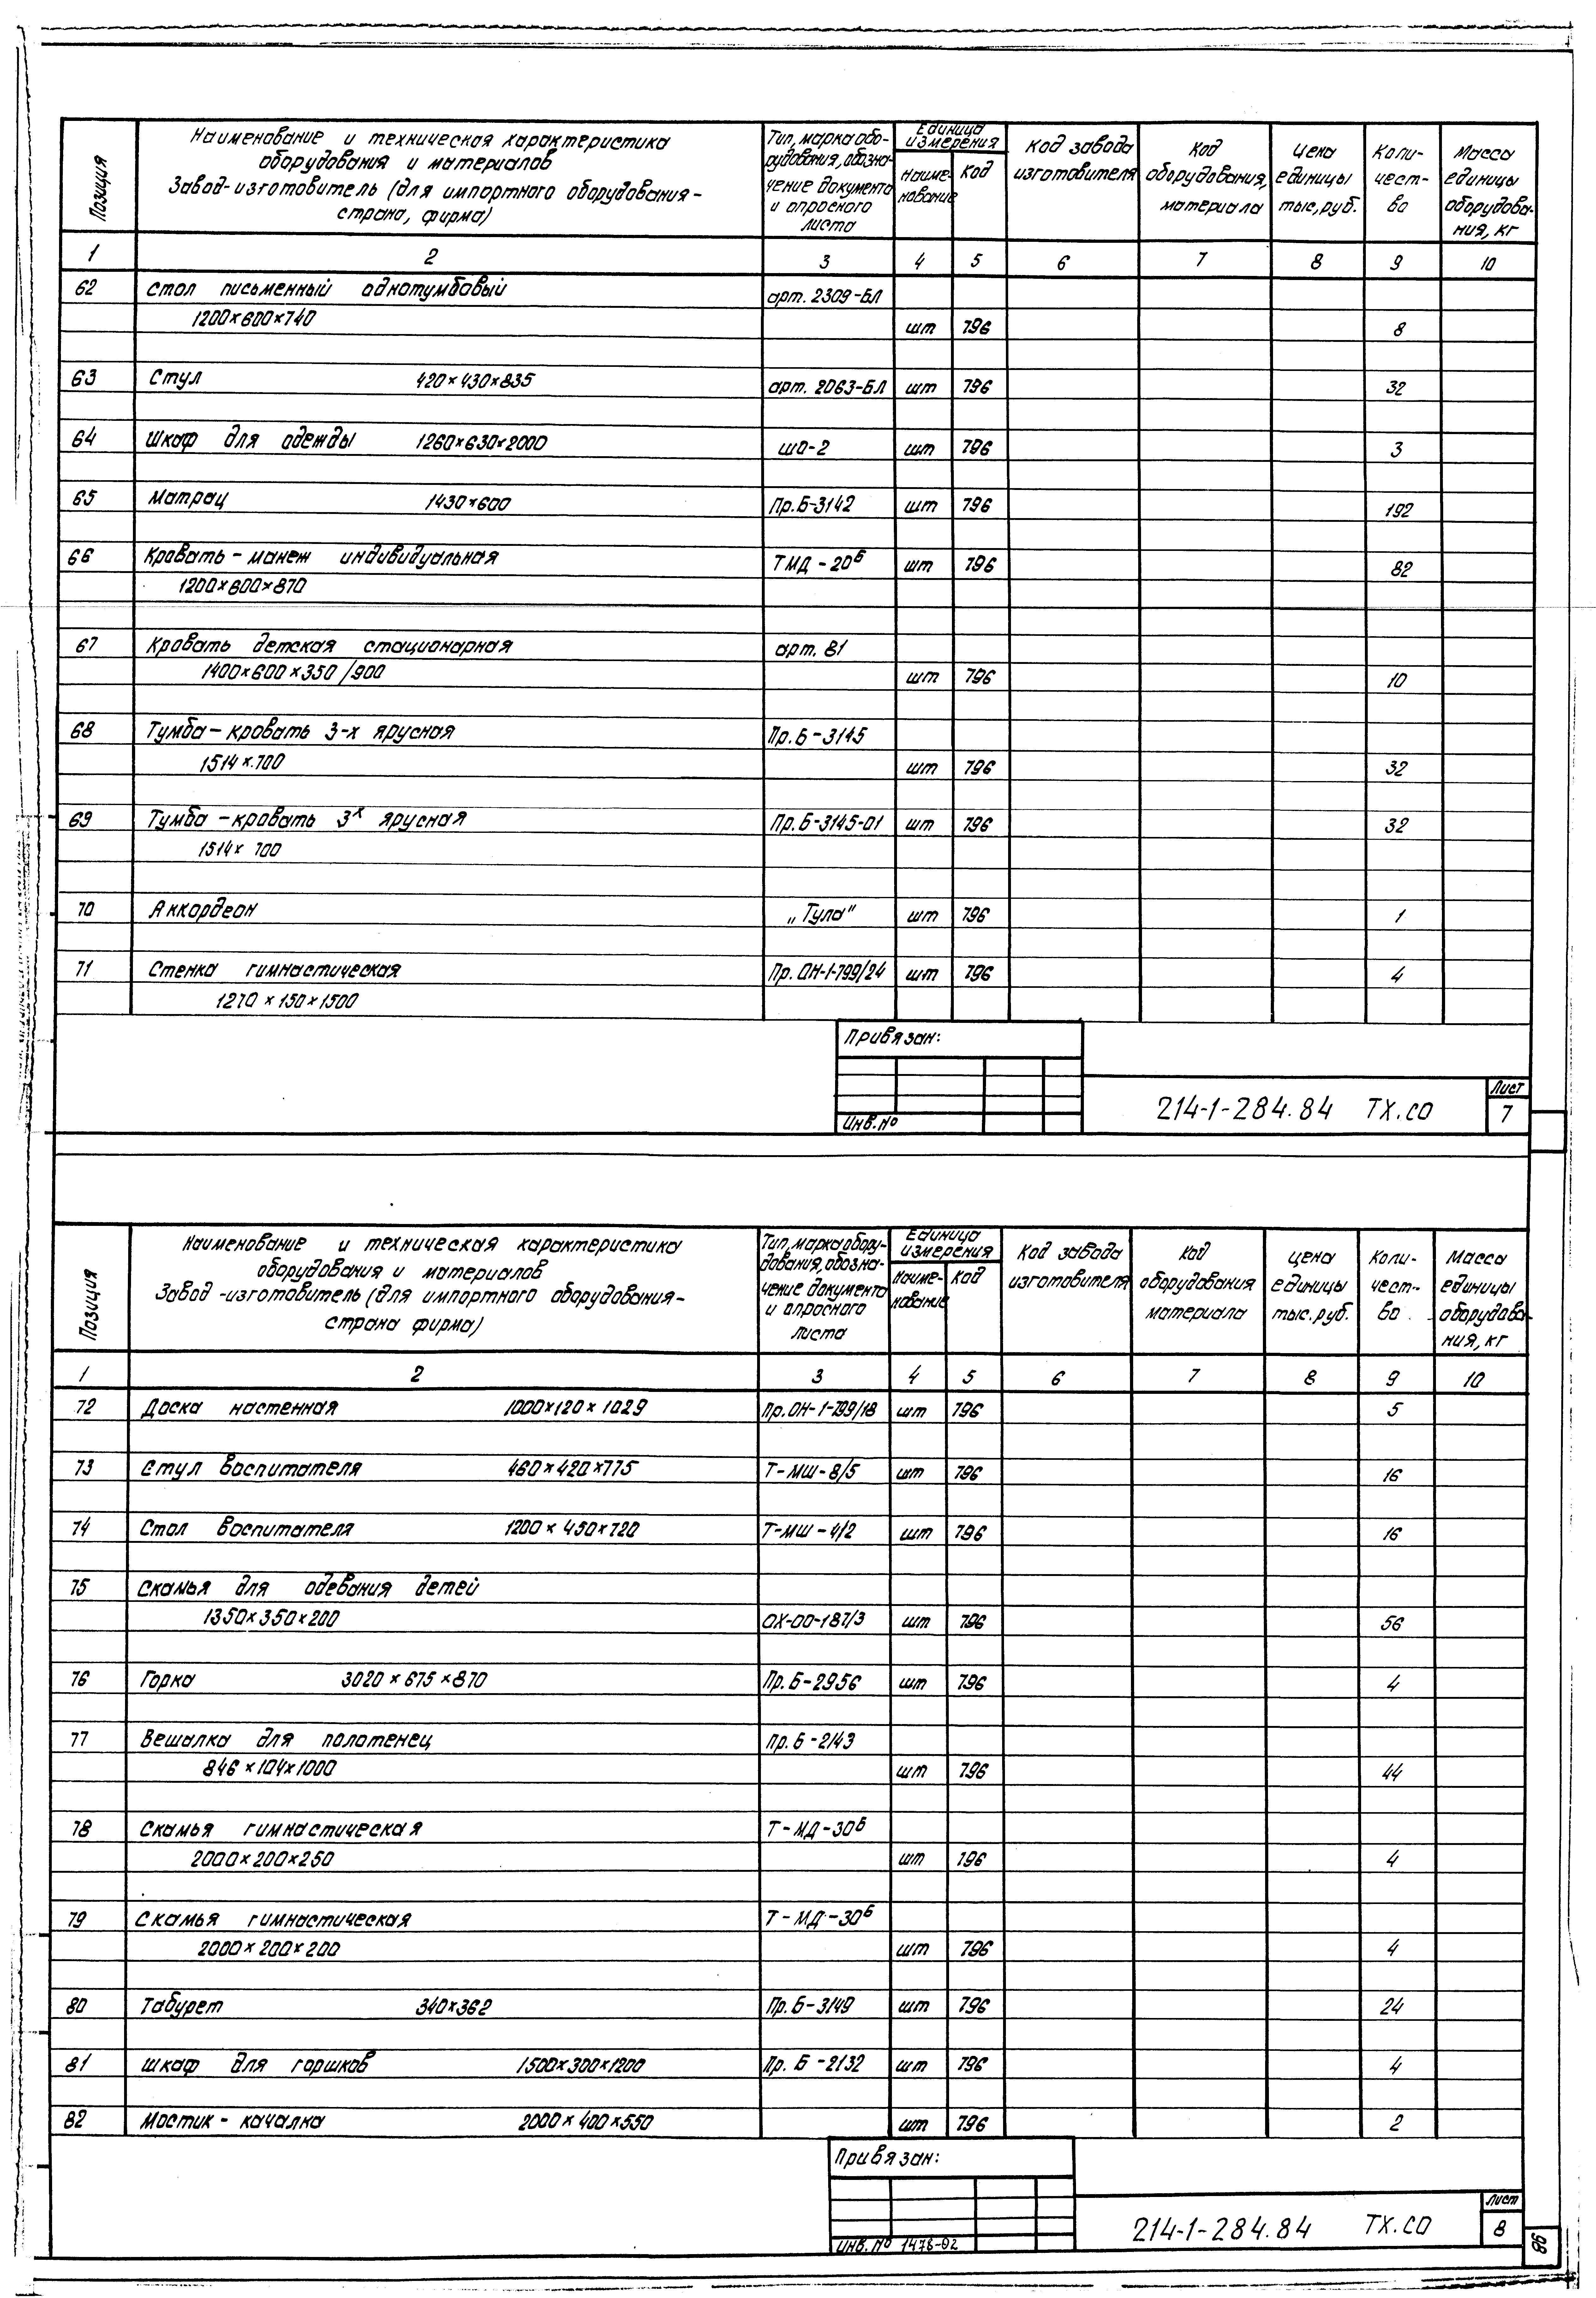 Позиция
Наименование и техническая характеристика
оборудования и материалов
Завод-изготовитель (для импортного оборудования -
страна, фирма)
Тип, марка обо-
рудования, обозна-
чение документа
и опросного
листа
Единица
измерения
наиме-
нование
Код
Код завода
изготовителя
Код
оборудования,
материала
Цена
единицы
тыс,руб.
Коли-
чест-
во
Масса
единицы
оборудова-
ния, кг
1 2 3 4 5 6 7 8 9 10
62 Стол письменный однотумбовый арт. 2309-БЛ
1200×600×740 шт 796 8
63 Стул 420×430×835 арт. 2063-БЛ шт 796 32
64 Шкаф для одежды 1260×630×2000 шо-2 шт 796 3
65 Матрац 1430×600 Пр.Б-3142 шт 796 192
66 Кровать - манеж индивидуальная ТМД - 20б шт 796 82
1200×600×870
67 Кровать детская стационарная арт. 81
1400×600×350/900 шт 796 10
68 Тумба - кровать 3-х ярусная Пр.Б - 3145
1514×700 шт 796 32
69 Тумба - кровать 3х ярусная Пр.Б-3145-01 шт 796 32
1514×700
70 Аккордеон „Тула" шт 796 1
71 Стенка гимнастическая Пр. ОН-1-799/24 шт 796 4
1270×150×1500
Привязан:
Инв.№
214-1-284.84 ТХ.СО
Лист
7
Позиция
Наименование и техническая характеристика
оборудования и материалов
Завод -изготовитель (для импортного оборудования-
страна фирма)
Тип, марка обору-
дования, обозна-
чение документа
и опросного
листа
Единица
измерения
Наиме-
нование
Код
Код завода
изготовителя
Код
оборудования
материала
Цена
единицы
тыс.руб.
Коли-
чест-
во
Масса
единицы
оборудова-
ния, кг
1 2 3 4 5 6 7 8 9 10
72 Доска настенная 1000×120×1029 Пр.ОН-1-799/18 шт 796 5
73 Стул воспитателя 460×420×775 Т-МШ-8/5 шт 796 16
74 Стол воспитателя 1200×450×720 Т-МШ-4/2 шт 796 16
75 Скамья для одевания детей
1350×350×200 ОХ-00-187/3 шт 796 56
76 Горка 3020×675×870 Пр.Б-2956 шт 796 4
77 Вешалка для полотенец пр.Б-2143
846×104×1000 шт 796 44
78 Скамья гимнастическая Т-МД-30б
2000×200×250 шт 796 4
79 Скамья гимнастическая Т-МД-30б
2000×200×200 шт 796 4
80 Табурет 340×362 Пр.Б-3149 шт 796 24
81 шкаф для горшков 1500×300×1200 Пр. Б-2132 шт 796 4
82 Мостик - качалка 2000×400×550 шт 796 2
Привязан:
Инв.№ 1476-02
214-1-284.84 ТХ.СО
Лист
8
98